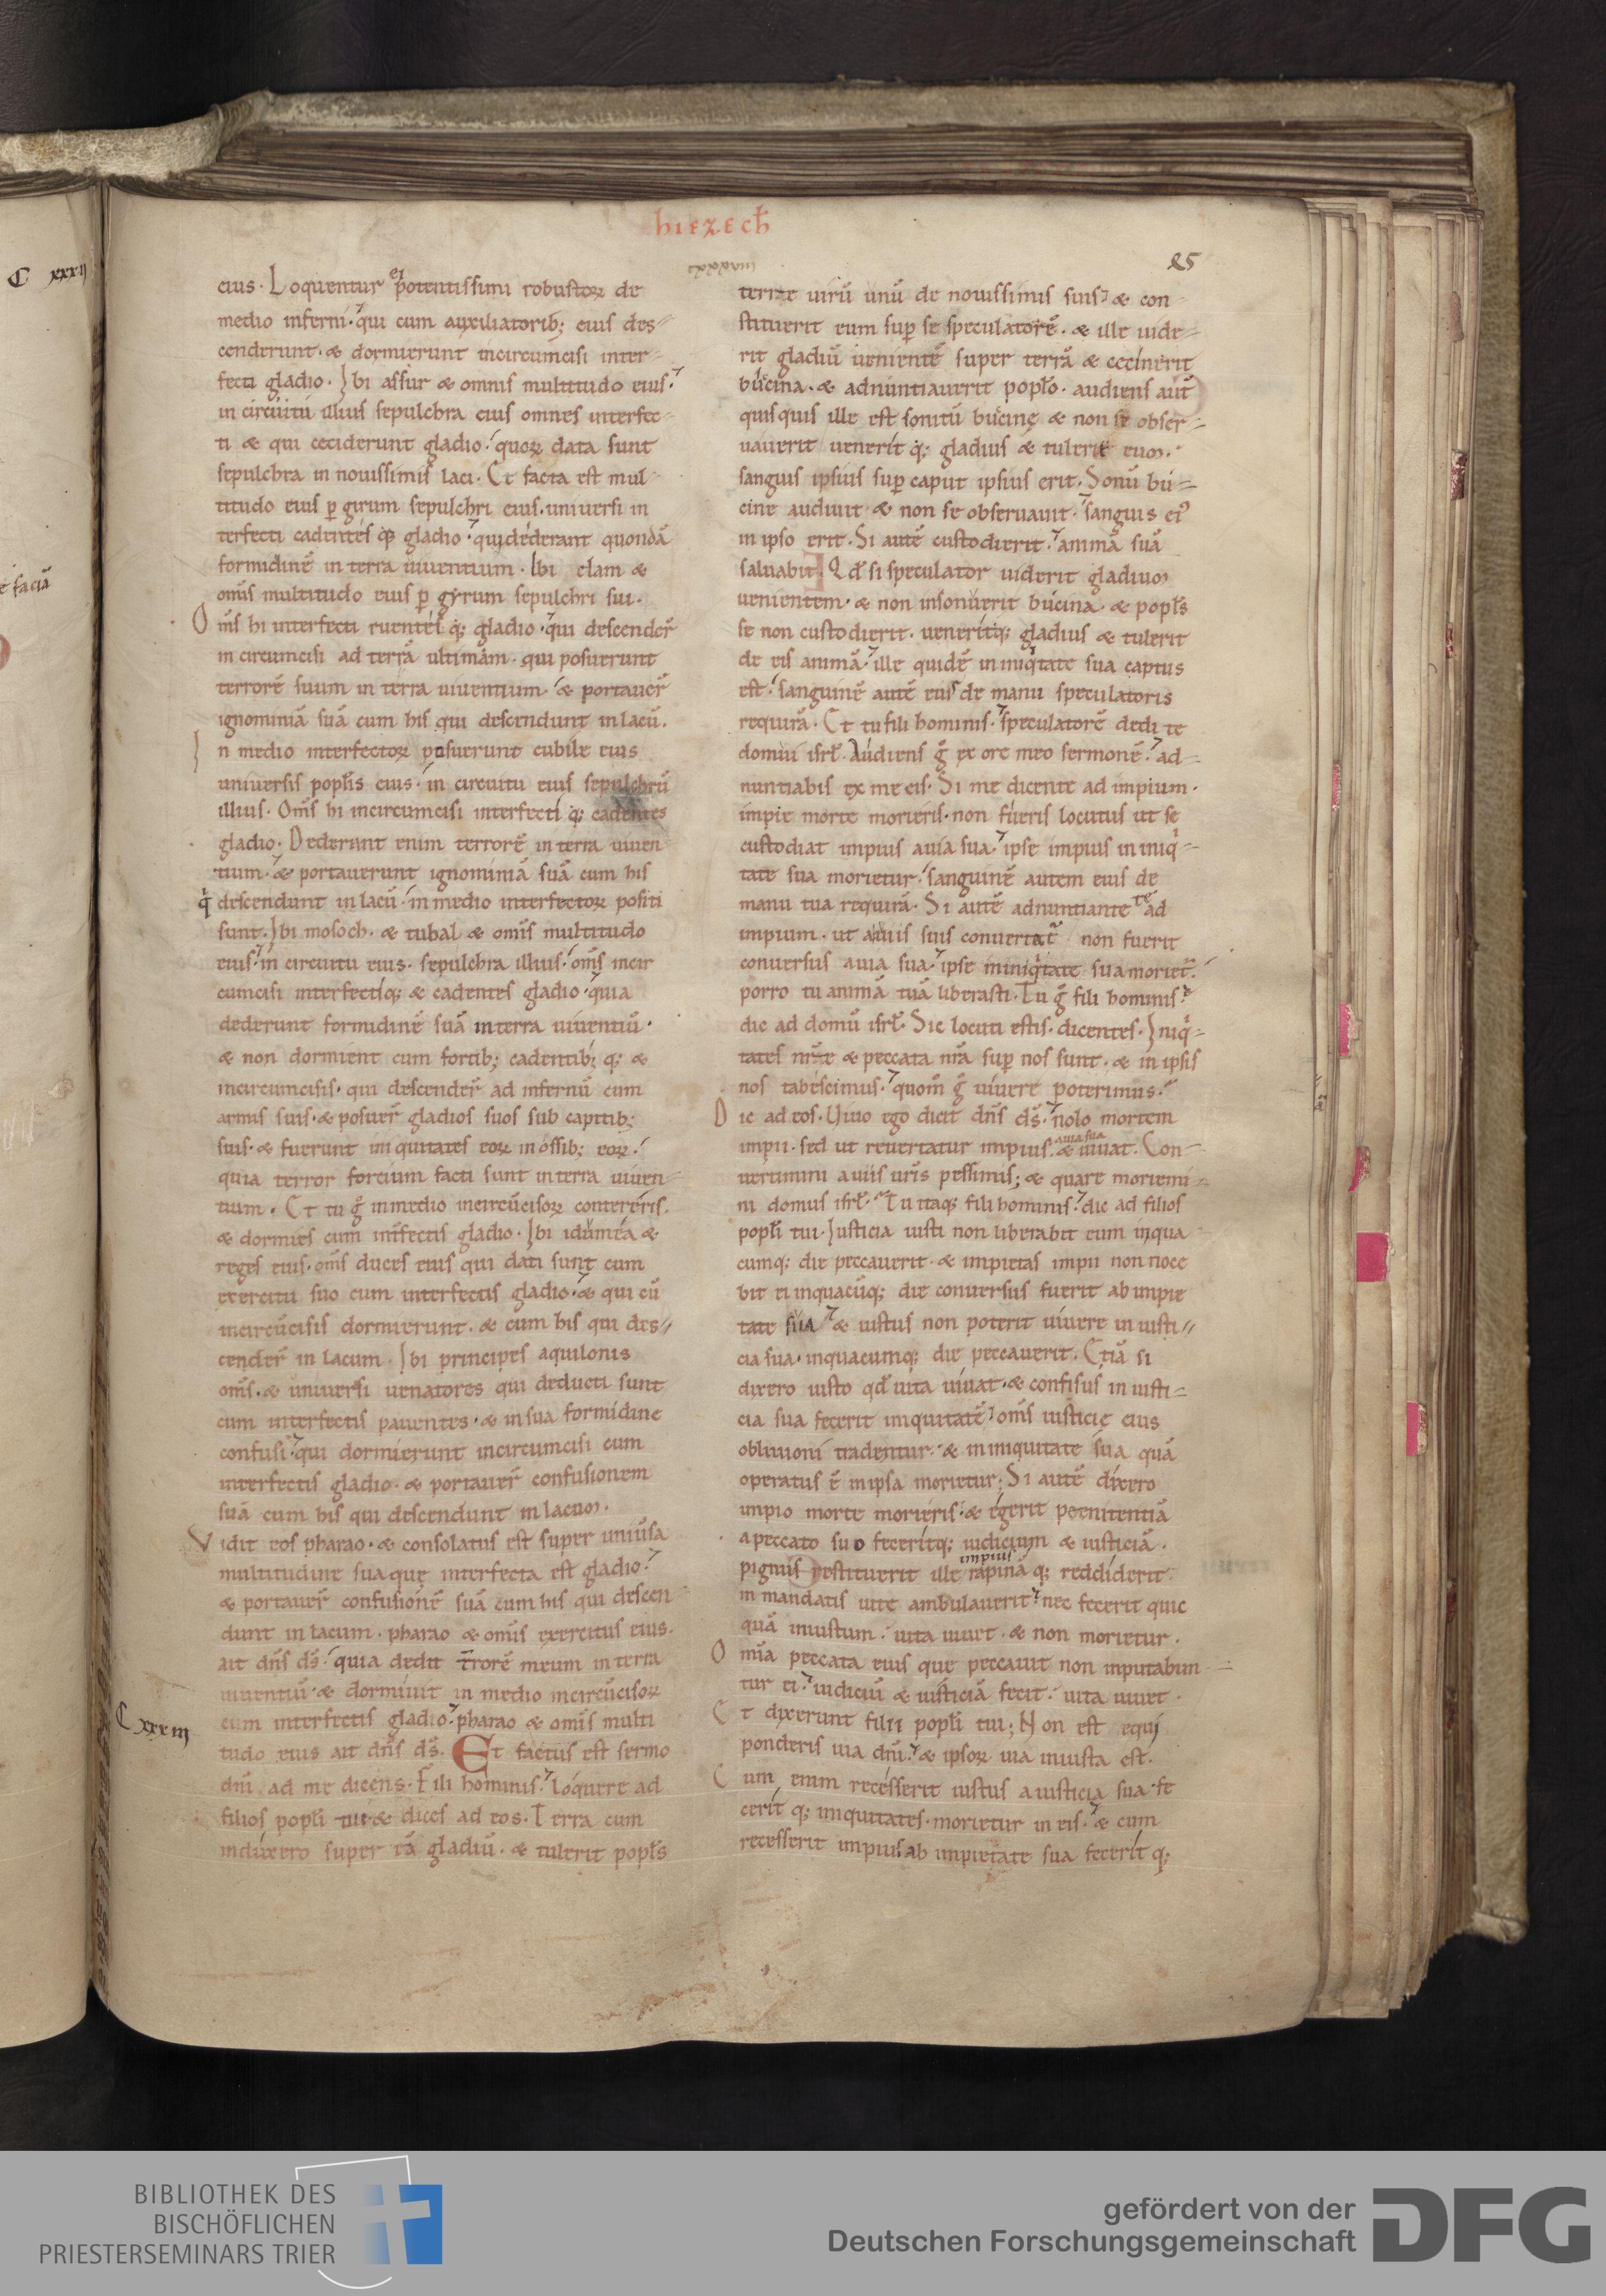 hiezech̄
85
C xxxij
eius. Loquentur ei potentissimi robustoꝝ de
medio inferni. qui cum auxiliatorib; eius des
cenderunt. & dormierunt incircumcisi inter
fecti gladio. Ibi assur & omnis multitudo eius.
in circuitu illius sepulchra eius omnes interfec
ti & qui ceciderunt gladio. quoꝝ data sunt
sepulchra in nouissimis laci. Et facta est mul
titudo eius ꝑ girum sepulchri eius. uniuersi in
terfecti cadentes gladio. qui dederant quondā
formidinē in terra uiuentium. Ibi elam &
om̄s multitudo eius ꝑ gyrum sepulchri sui.
Om̄s hi interfecti ruentes q; gladio. qui descender̄
in circumcisi ad terrā ultimam. qui posuerunt
terrorē suum in terra uiuentium. & portauer̄
ignominiā suā cum his qui descendunt in lacū.
In medio interfectoꝝ posuerunt cubile eius
uniuersis popl̄is eius. in circuitu eius sepulchrū
illius. Om̄s hi incircumcisi interfecti q; cadentes
gladio. Dederunt enim terrorē in terra uiuen
tium. & portauerunt ignominiā suā cum his
qi descendunt in lacū. in medio interfectoꝝ positi
sunt. Ibi mosoch. & tubal & om̄is multitudo
eius. in circuitu eius. sepulchra illius. om̄s incir
cumcisi interfectiq; & cadentes gladio. quia
dederunt formidinē suā in terra uiuentiū.
& non dormient cum fortib; cadentib; q; &
incircumcisis. qui descender̄ ad infernū cum
armis suis. & posuer̄ gladios suos sub capitib;
suis. & fuerunt iniquitates eoꝝ in ossib; eoꝝ.
quia terror fortium facti sunt in terra uiuen
tium. Et tu g̊ in medio incircūcisoꝝ contereris.
& dormies cum int̄fectis gladio. Ibi idumea &
reges eius. om̄s duces eius qui dati sunt cum
exercitu suo cum interfectis gladio. & qui cū
incircūcisis dormierunt. & cum his qui des
cender̄ in lacum. Ibi principes aquilonis
om̄s. & uniuersi uenatores qui deducti sunt
cum interfectis pauentes. & in sua formidine
confusi. qui dormierunt incircumcisi cum
interfectis gladio. & portauer̄ confusionem
suā cum his qui descendunt in lacum.
Vidit eos pharao. & consolatus est super uniūsa
multitudine sua quę interfecta est gladio.
& portauer̄ confusionē suā cum his qui descen
dunt in lacum. pharao & om̄is exercitus eius.
ait dn̄s ds̄. quia dedit t̄rorē meum in terra
uiuentiū. & dormiuit in medio incircūcisoꝝ
cum interfectis gladio. pharao & om̄is multi
C xxxiij
tudo eius ait dn̄s ds̄. Et factus est sermo
dn̄i ad me dicens. Fili hominis. loquere ad
filios popl̄i tui. & dices ad eos. Terra cum
induxero super eā gladiū. & tulerit popl̄s
terrae uirū unū de nouissimis suis. & con
stituerit eum suꝑ se speculatorē. & ille uide
rit gladiū uenientē super terrā & cecinerit
bucina. & adnuntiauerit popl̄o. audiens aut̄
quisquis ille est sonitū bucinę & non se obser
uauerit uenerit q; gladius & tulerit eum.
sanguis ipsius suꝑ caput ipsius erit. Sonū bu
cine audiuit & non se obseruauit. sanguis ei9
in ipso erit. Si autē custodierit. animā suā
saluabit. Qd̄ si speculator uiderit gladium
uenientem. & non insonuerit bucina. & popl̄s
se non custodierit. ueneritq; gladius & tulerit
de eis animā. ille quidē in iniqitate sua captus
est. sanguinē autē eius de manu speculatoris
requirā. Et tu fili hominis. speculatorē dedi te
domui isrl̄. Audiens g̊ ex ore meo sermonē. ad
nuntiabis ex me eis. Si me dicente ad impium.
impie morte morieris. non fueris locutus ut se
custodiat impius a uia sua. ipse impius in iniqi
tate sua morietur. sanguinē autem eius de
manu tua requirā. Si autē adnuntiante te ad
impium. ut a uiis suis conuertat̄ non fuerit
conuersus a uia sua. ipse in iniqitate sua moriet̄.
porro tu animā tuā liberasti. Tu g̊ fili hominis.
dic ad domū isrl̄. Sic locuti estis. dicentes. Iniqi
tates nr̄ae & peccata nr̄a suꝑ nos sunt. & in ipsis
nos tabescimus. quom̄ g̊ uiuere poterimus.
Dic ad eos. Uiuo ego dicit dn̄s ds̄. nolo mortem
impii. sed ut reuertatur impius a uia sua & uiuat. Con
uertimini a uiis ur̄is pessimis; & quare moriemi
ni domus isrl̄. Tu itaq; fili hominis. dic ad filios
popl̄i tui. Iusticia iusti non liberabit eum in qua
cumq; die peccauerit. & impietas impii non noce
bit ei in quacūq; die conuersus fuerit ab impie
tate sua & iustus non poterit uiuere in iusti
cia sua. in quacumq; die peccauerit. Etiā si
dixero iusto qd̄ uita uiuat. & confisus in iusti
cia sua fecerit iniquitatē. om̄s iusticię eius
obliuioni tradentur. & in iniquitate sua quā
operatus ē in ipsa morietur. Si autē dixero
impio morte morieris. & egerit poenitentiā
a peccato suo feceritq; iudicium & iusticiā.
pignus restituerit ille impius rapinā q; reddiderit.
in mandatis uite ambulauerit. nec fecerit quic
quā iniustum. uita uiuet. & non morietur.
Omīa peccata eius que peccauit non inputabun
tur ei. iudiciū & iusticiā fecit. uita uiuet.
Et dixerunt filii popl̄i tui; Non est equi
ponderis uia dn̄i. & ipsoꝝ uia iniusta est.
Cum enim recesserit iustus a iusticia sua. fe
cerit q; iniquitates. morietur in eis. & cum
recesserit impius ab impietate sua fecerit q;
BIBLIOTHEK DES
BISCHÖFLICHEN
PRIESTERSEMINARS TRIER
gefördert von der
Deutschen Forschungsgemeinschaft
DFG